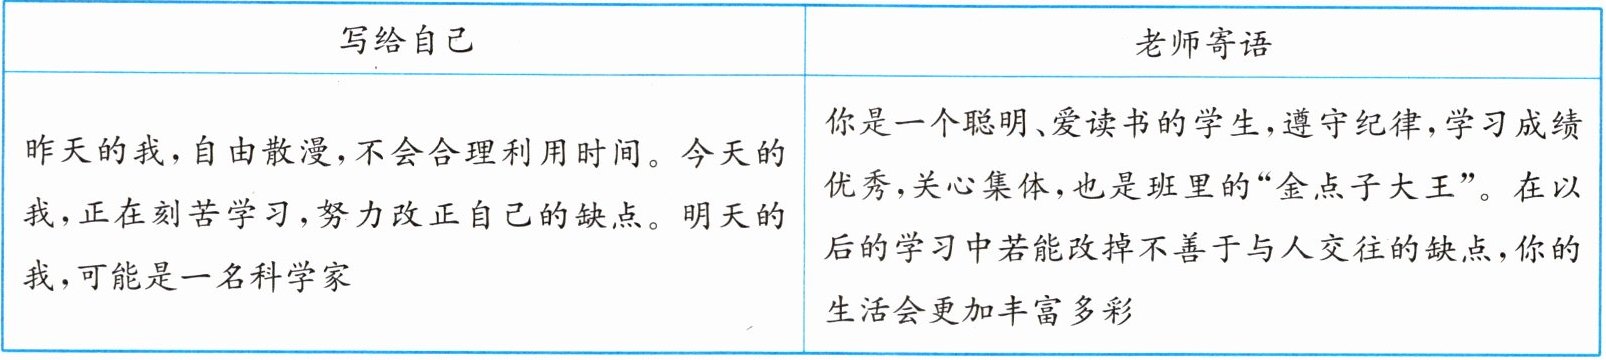 写给自己
老师寄语
昨天的我，自由散漫，不会合理利用时间。今天的
我，正在刻苦学习，努力改正自己的缺点。明天的
我，可能是一名科学家
你是一个聪明、爱读书的学生，遵守纪律，学习成绩
优秀，关心集体，也是班里的“金点子大王”。在以
后的学习中若能改掉不善于与人交往的缺点，你的
生活会更加丰富多彩